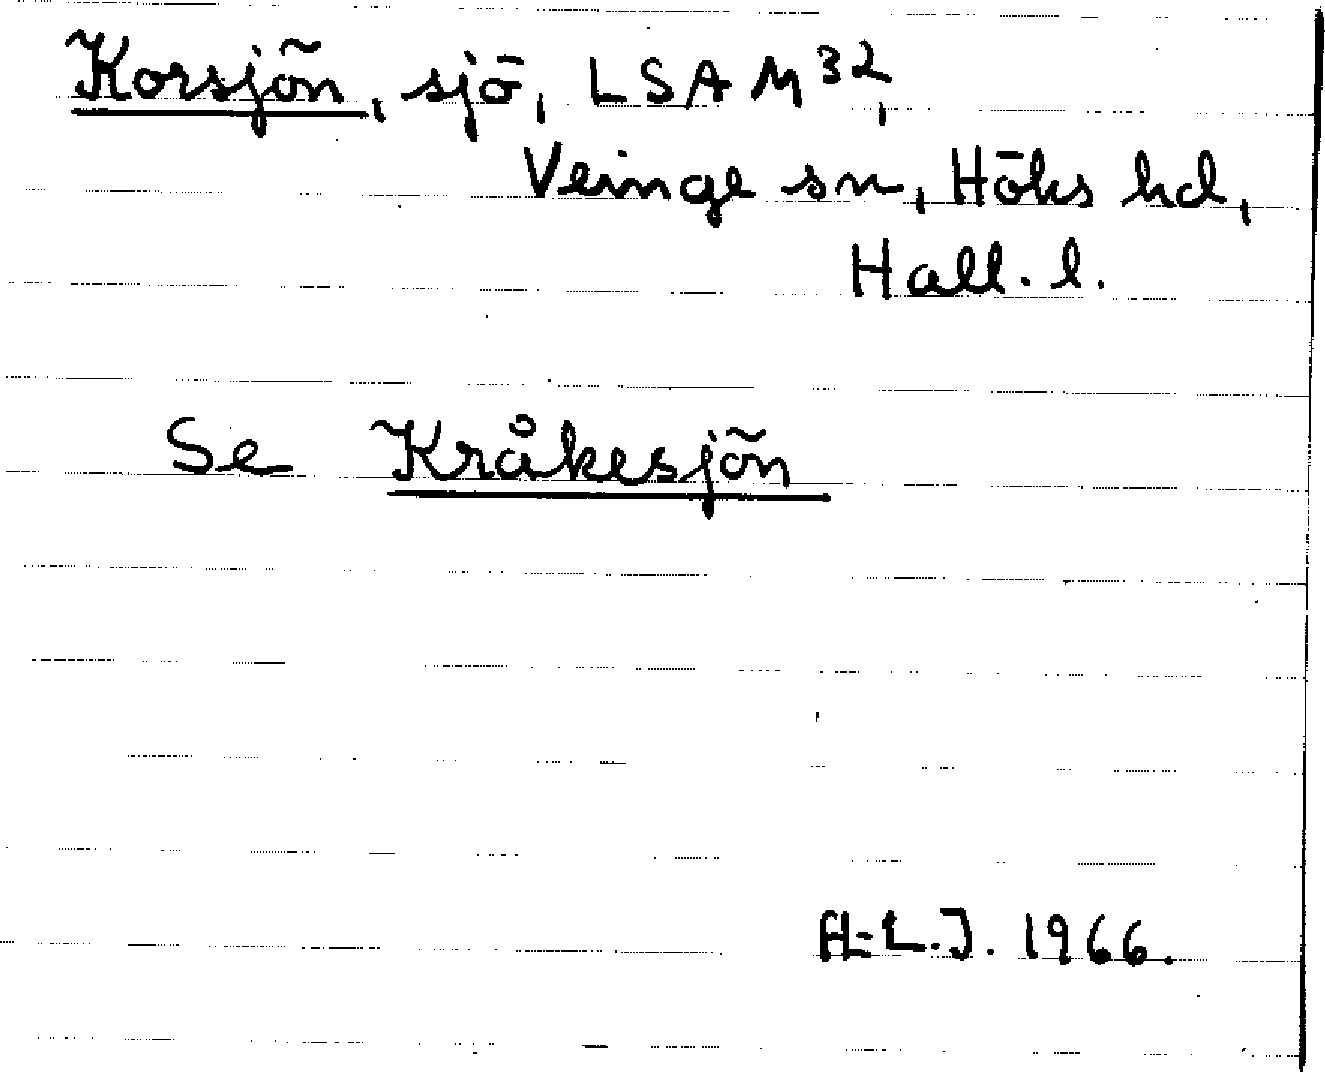 Korsjön, sjö, LSA M32,
Veinge sn, Höks hd,
Hall. l.
Se Kråkesjön
A-L.J. 1966.